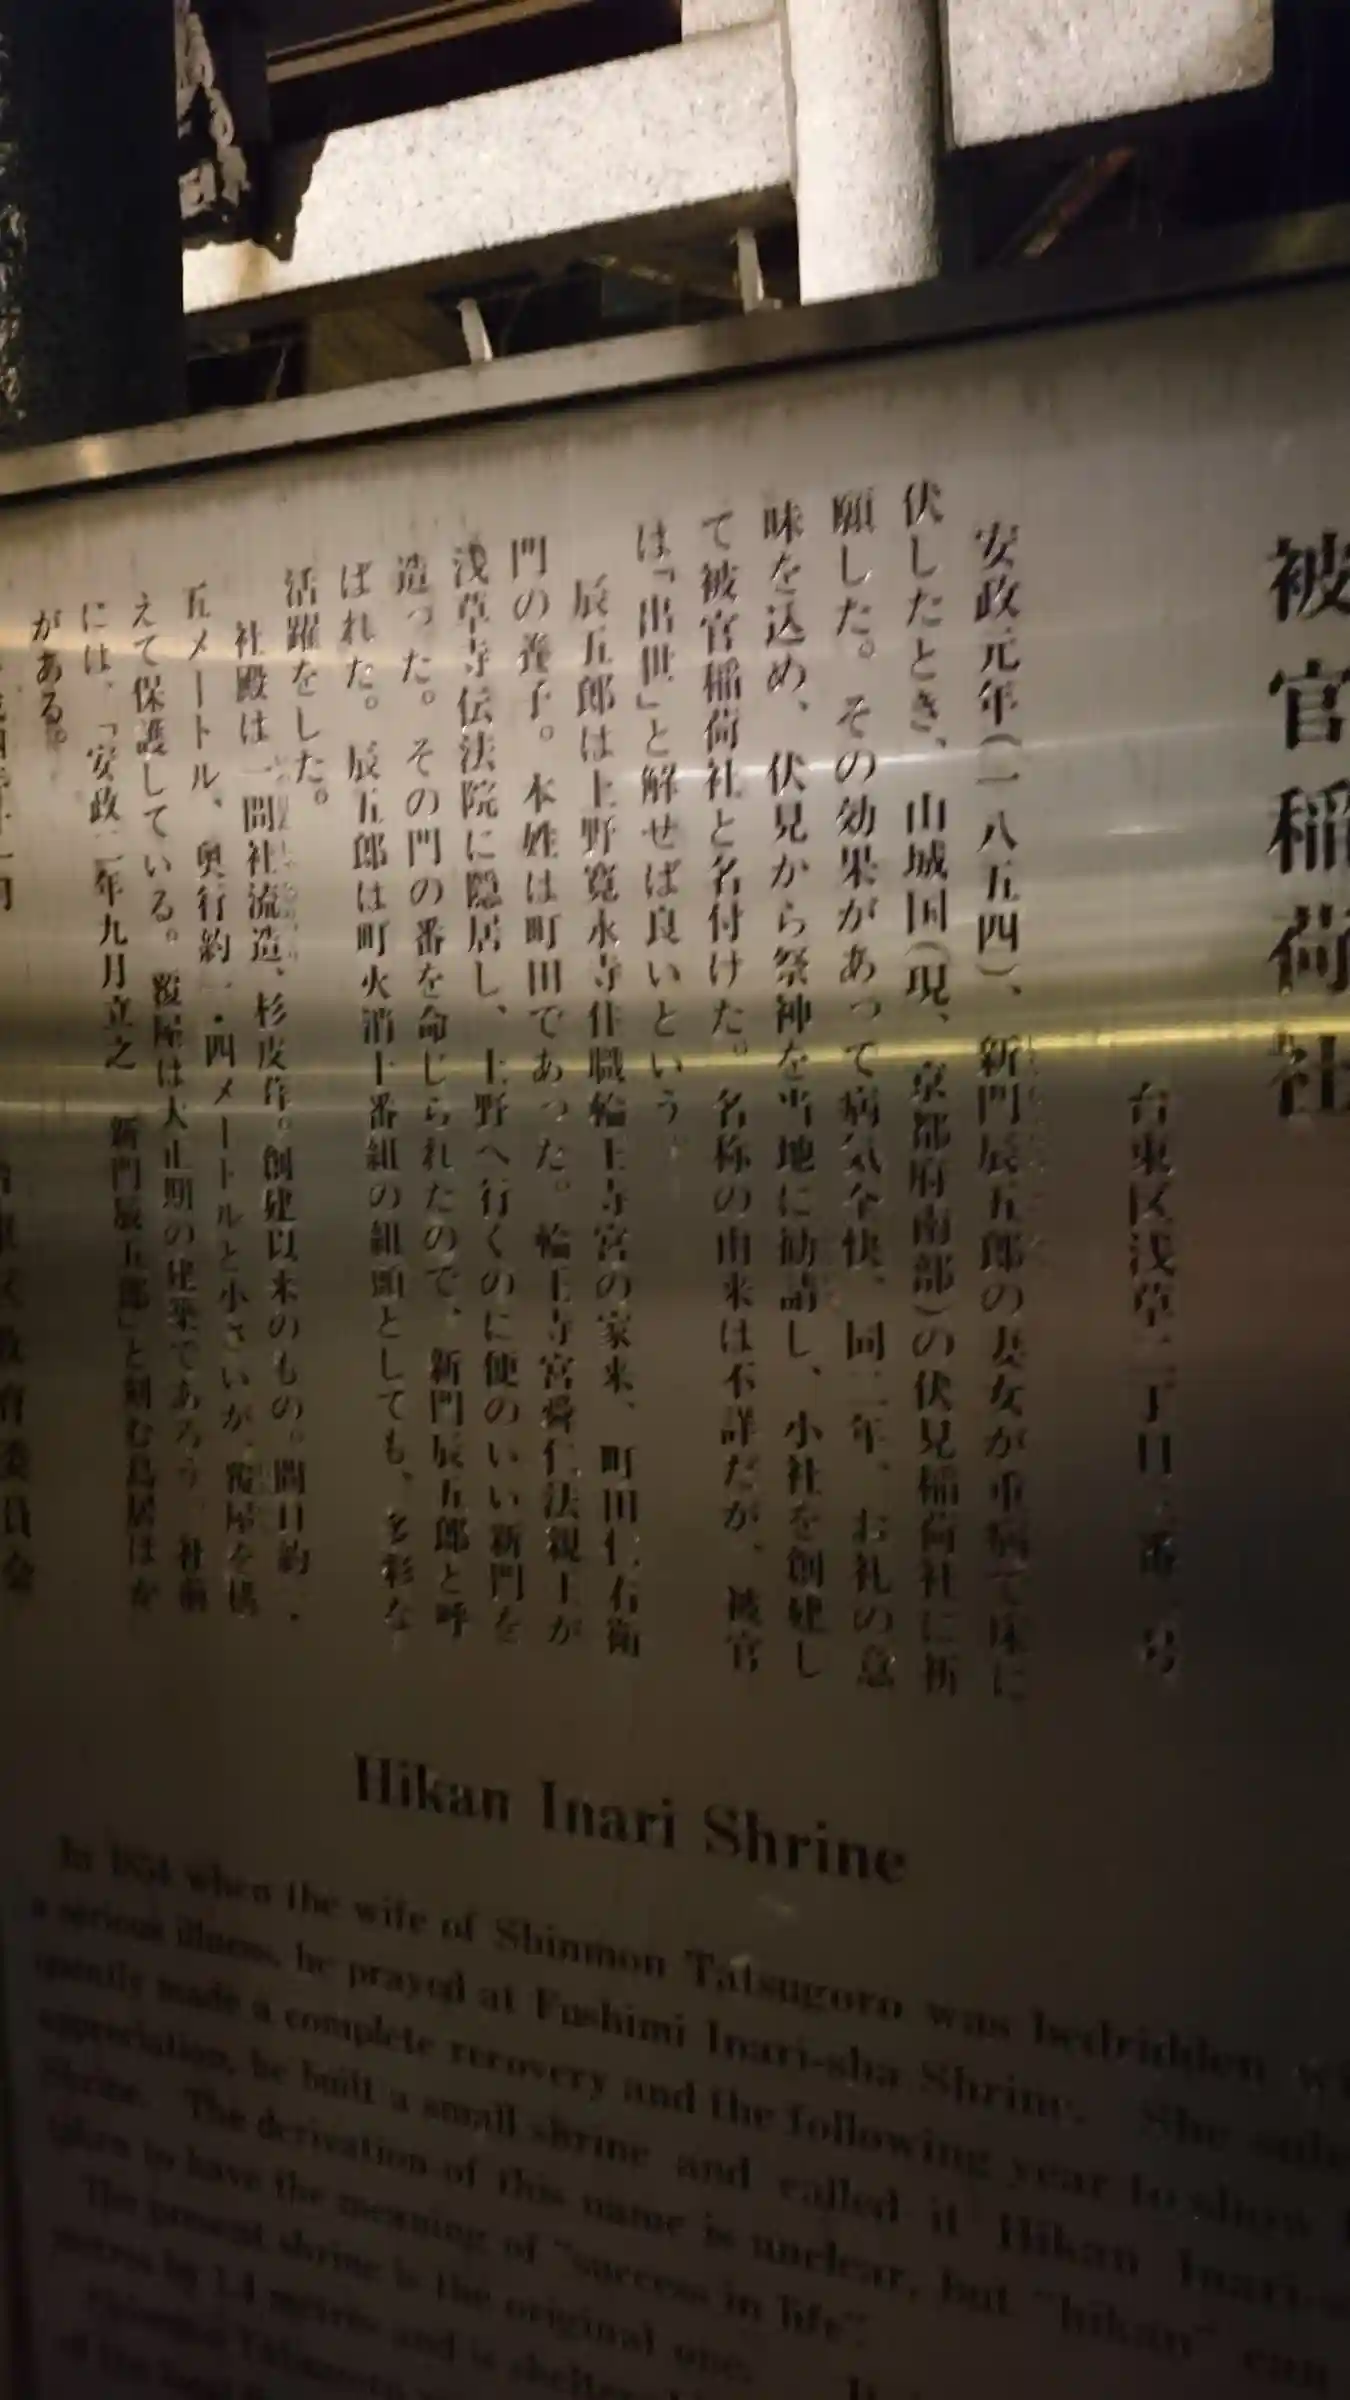 被官稲荷社
台東区浅草二丁目三番一号
安政元年(一八五四)、新門辰五郎の妻女が重病で床に
伏したとき、山城国(現、京都府南部)の伏見稲荷社に祈
願した。その効果があって病気全快、同二年、お礼の意
味を込め、伏見から祭神を当地に勧請し、小社を創建し
て被官稲荷社と名付けた。名称の由来は不詳だが、被官
は「出世」と解せば良いという。
辰五郎は上野寛永寺住職輪王寺宮の家来、町田仁右衛
門の養子。本姓は町田であった。輪王寺宮舜仁法親王が
浅草寺伝法院に隠居し、上野へ行くのに便のいい新門を
造った。その門の番を命じられたので、新門辰五郎と呼
ばれた。辰五郎は町火消十番組の組頭としても、多彩な
活躍をした。
社殿は一間社流造、杉皮葺。創建以来のもの。間口約一・
五メートル、奥行約一・四メートルと小さいが、覆屋を構
えて保護している。覆屋は大正期の建築であろう。社前
には、「安政二年九月立之 新門辰五郎」と刻む鳥居ほか
がある。
教育委員会
Hikan Inari Shrine
In 1854 when the wife of Shinmon Tatsugoro was bedridden
a serious illness, he prayed at Fushimi Inari-sha Shrine. She
quently made a complete recovery and the following year to show
appreciation, he built a small shrine and called it Hikan Inari-
Shrine. The derivation of this name is unclear, but "hikan" can
taken to have the meaning of "success in life".
The present shrine is the original one.
metres by 1.4 metres and is
Shinmon Tatsugoro